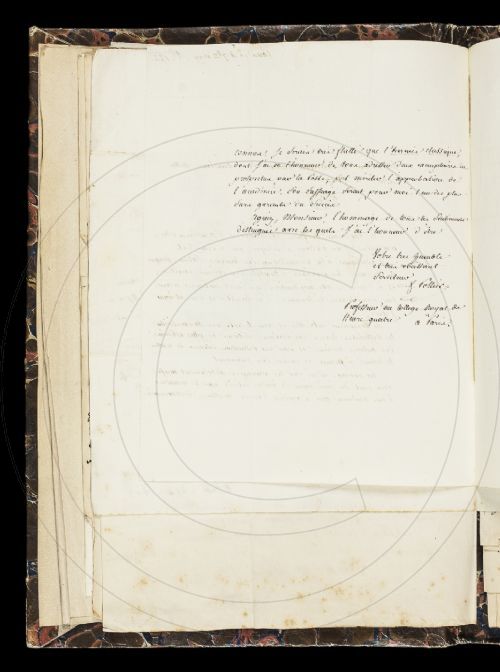 connue. Je serais très flatté que l'hermès classique,
dont j'ai l'honneur de vous adresser deux exemplaires
par la poste, put mériter l'approbation de
l'académie. Son suffrage serait pour moi l'un des plus
sûrs garants du succès.
Monsieur, l'hommage de tous les sentiments
distingués avec lesquels j'ai l'honneur d'être
Votre très humble
et très obéissant
Serviteur
Professeur au collège Royal de
Henri quatre à Paris.